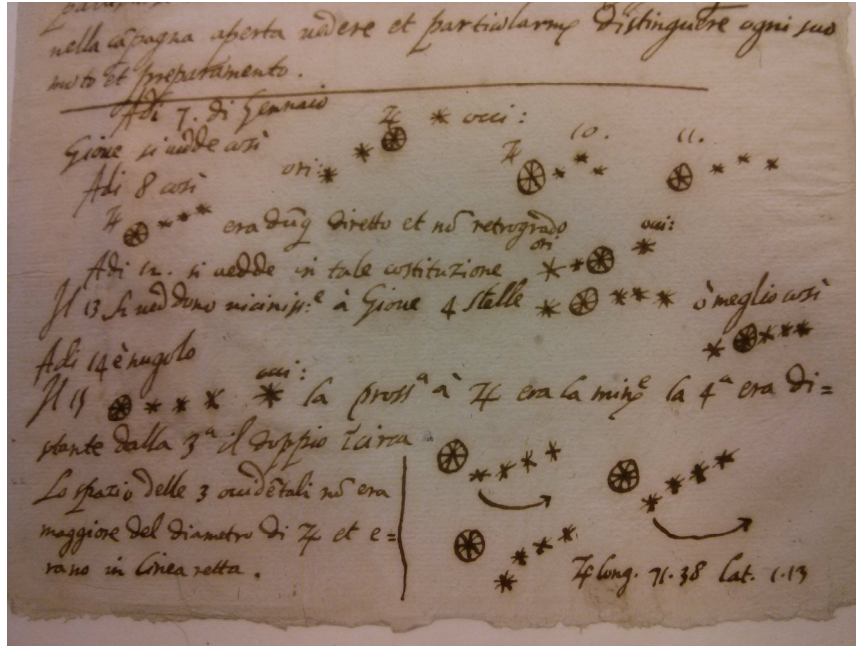 nella cãpagna aperta uedere et particolarmẽ distinguere ogni suo
moto et preparamento.
Adi 7. di Gennaio
Gioue si uedde così
ori: ♃ occi:
Adi 8 così
♃ 10. 11.
♃ era dũq diretto et nõ retrogrado
Adi 12. si uedde in tale costituzione ori occi:
Il 13 si ueddono uiciniss:e à Gioue 4 stelle ò meglio così
Adi 14 è nugolo
Il 15 occi: la prossa à ♃ era la mine la 4a era di=
stante dalla 3a il doppio circa
Lo spazio delle 3 occidẽtali nõ era
maggiore del diametro di ♃ et e=
rano in linea retta.
♃ long. 71.38 lat. 1.13